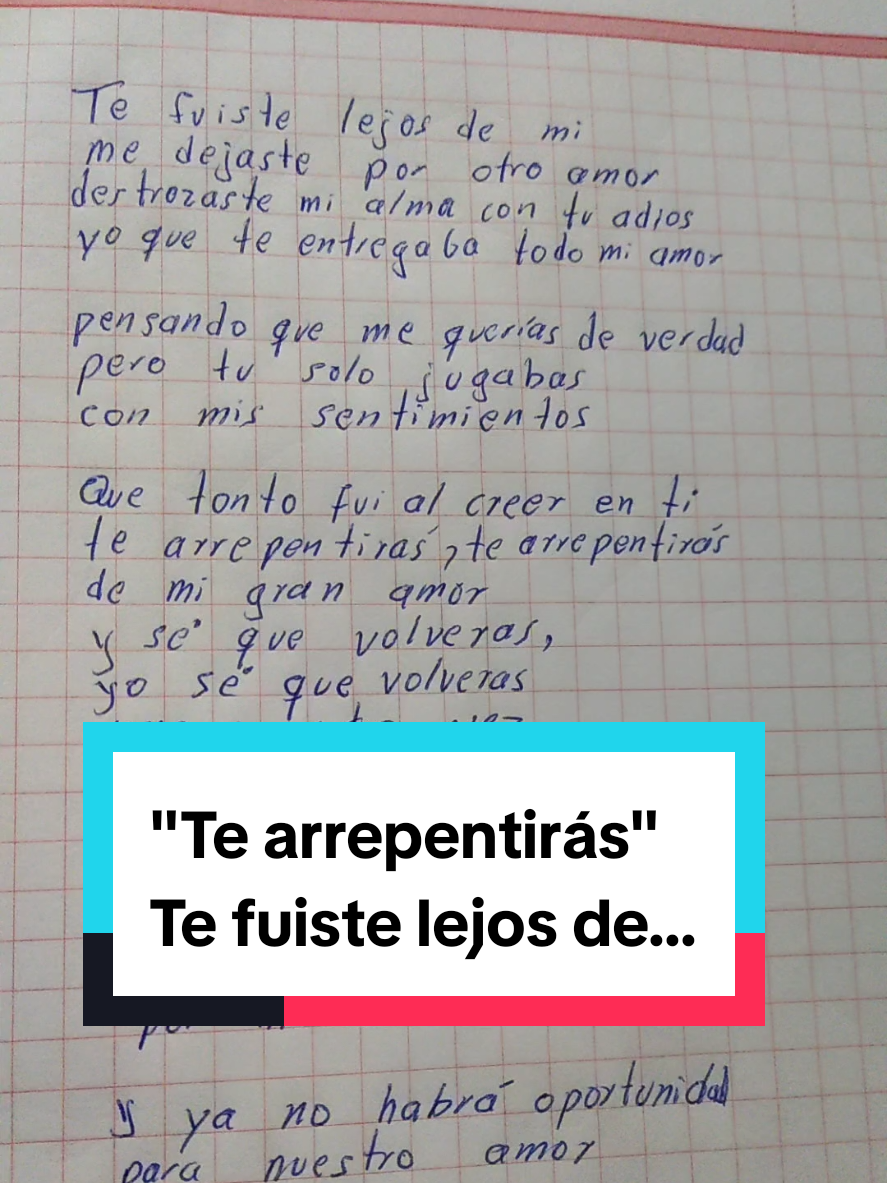 Te fuiste lejos de mi
me dejaste por otro amor
destrozaste mi alma con tu adios
yo que te entregaba todo mi amor
pensando que me querías de verdad
pero tu solo jugabas
con mis sentimientos
Que tonto fui al creer en ti
te arrepentirás, te arrepentirás
de mi gran amor
y sé que volveras,
yo sé que volveras
"Te arrepentirás"
Te fuiste lejos de...
y ya no habrá oportunidad
para nuestro amor